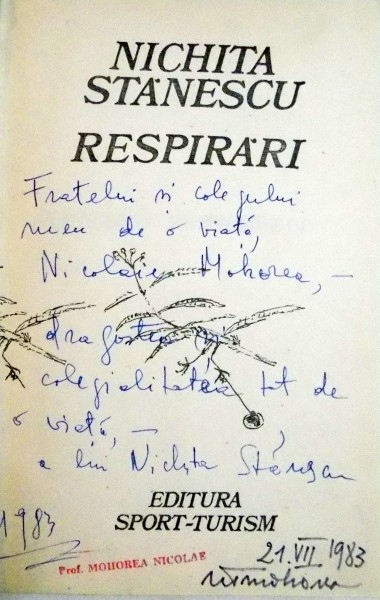 NICHITA
STĂNESCU
RESPIRĂRI
Fratelui și colegului
meu de o viață,
Nicolaie Mohorea, –
dragostea și
colegialitatea tot de
o viață, –
a lui Nichita Stănescu
EDITURA
SPORT-TURISM
1983
Prof. MOHOREA NICOLAE
21.VII 1983